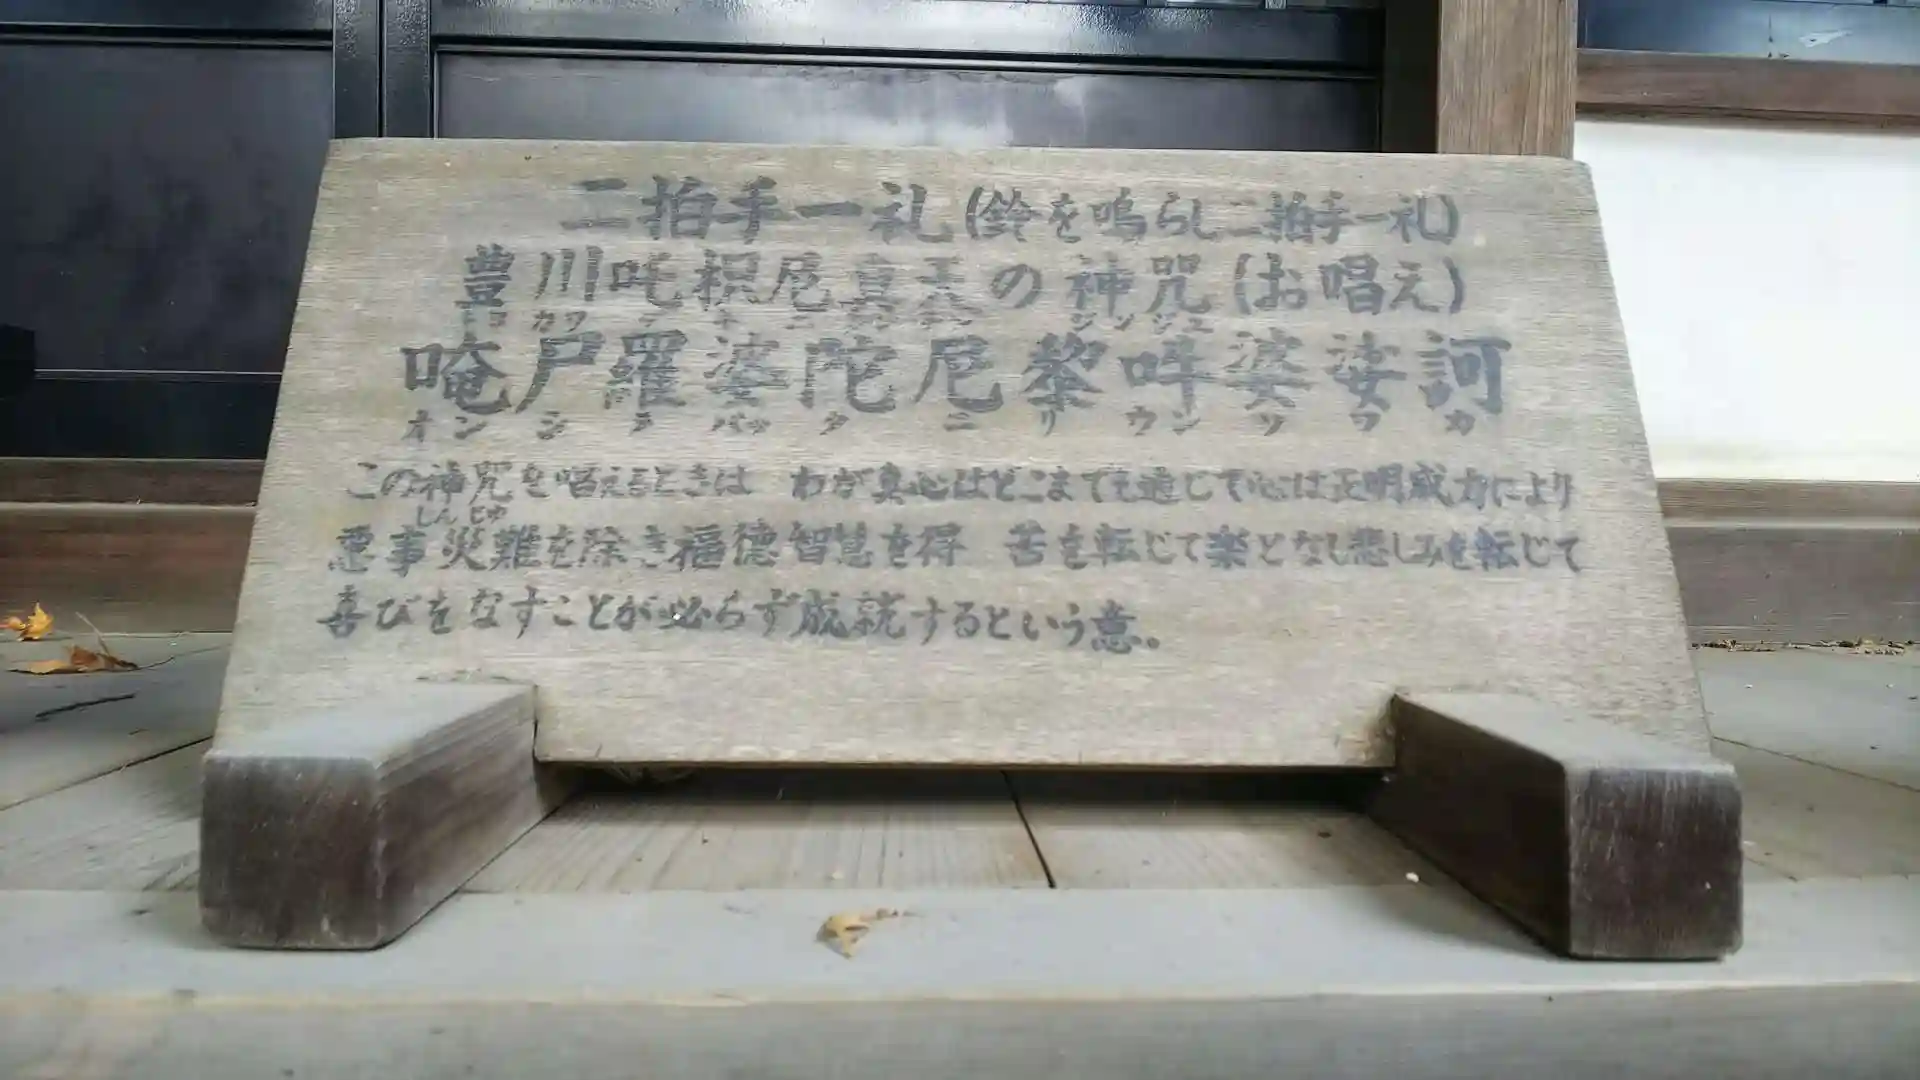 二拍手一礼(鈴を鳴らし二拍手一礼)
豊川吒枳尼真天の神咒(お唱え)
トヨ カワ ダ キ ニ シン テン シンジュ
唵尸羅婆陀尼黎吽娑婆訶
オン シ ラ バッ タ ニ リ ウン ソ ワ カ
この神咒を唱えるときは わが真心はどこまでも通じて心は正明成力により
しんじゆ
悪事災難を除き福徳智慧を得 苦を転じて楽となし悲しみを転じて
喜びをなすことが必らず成就するという意。